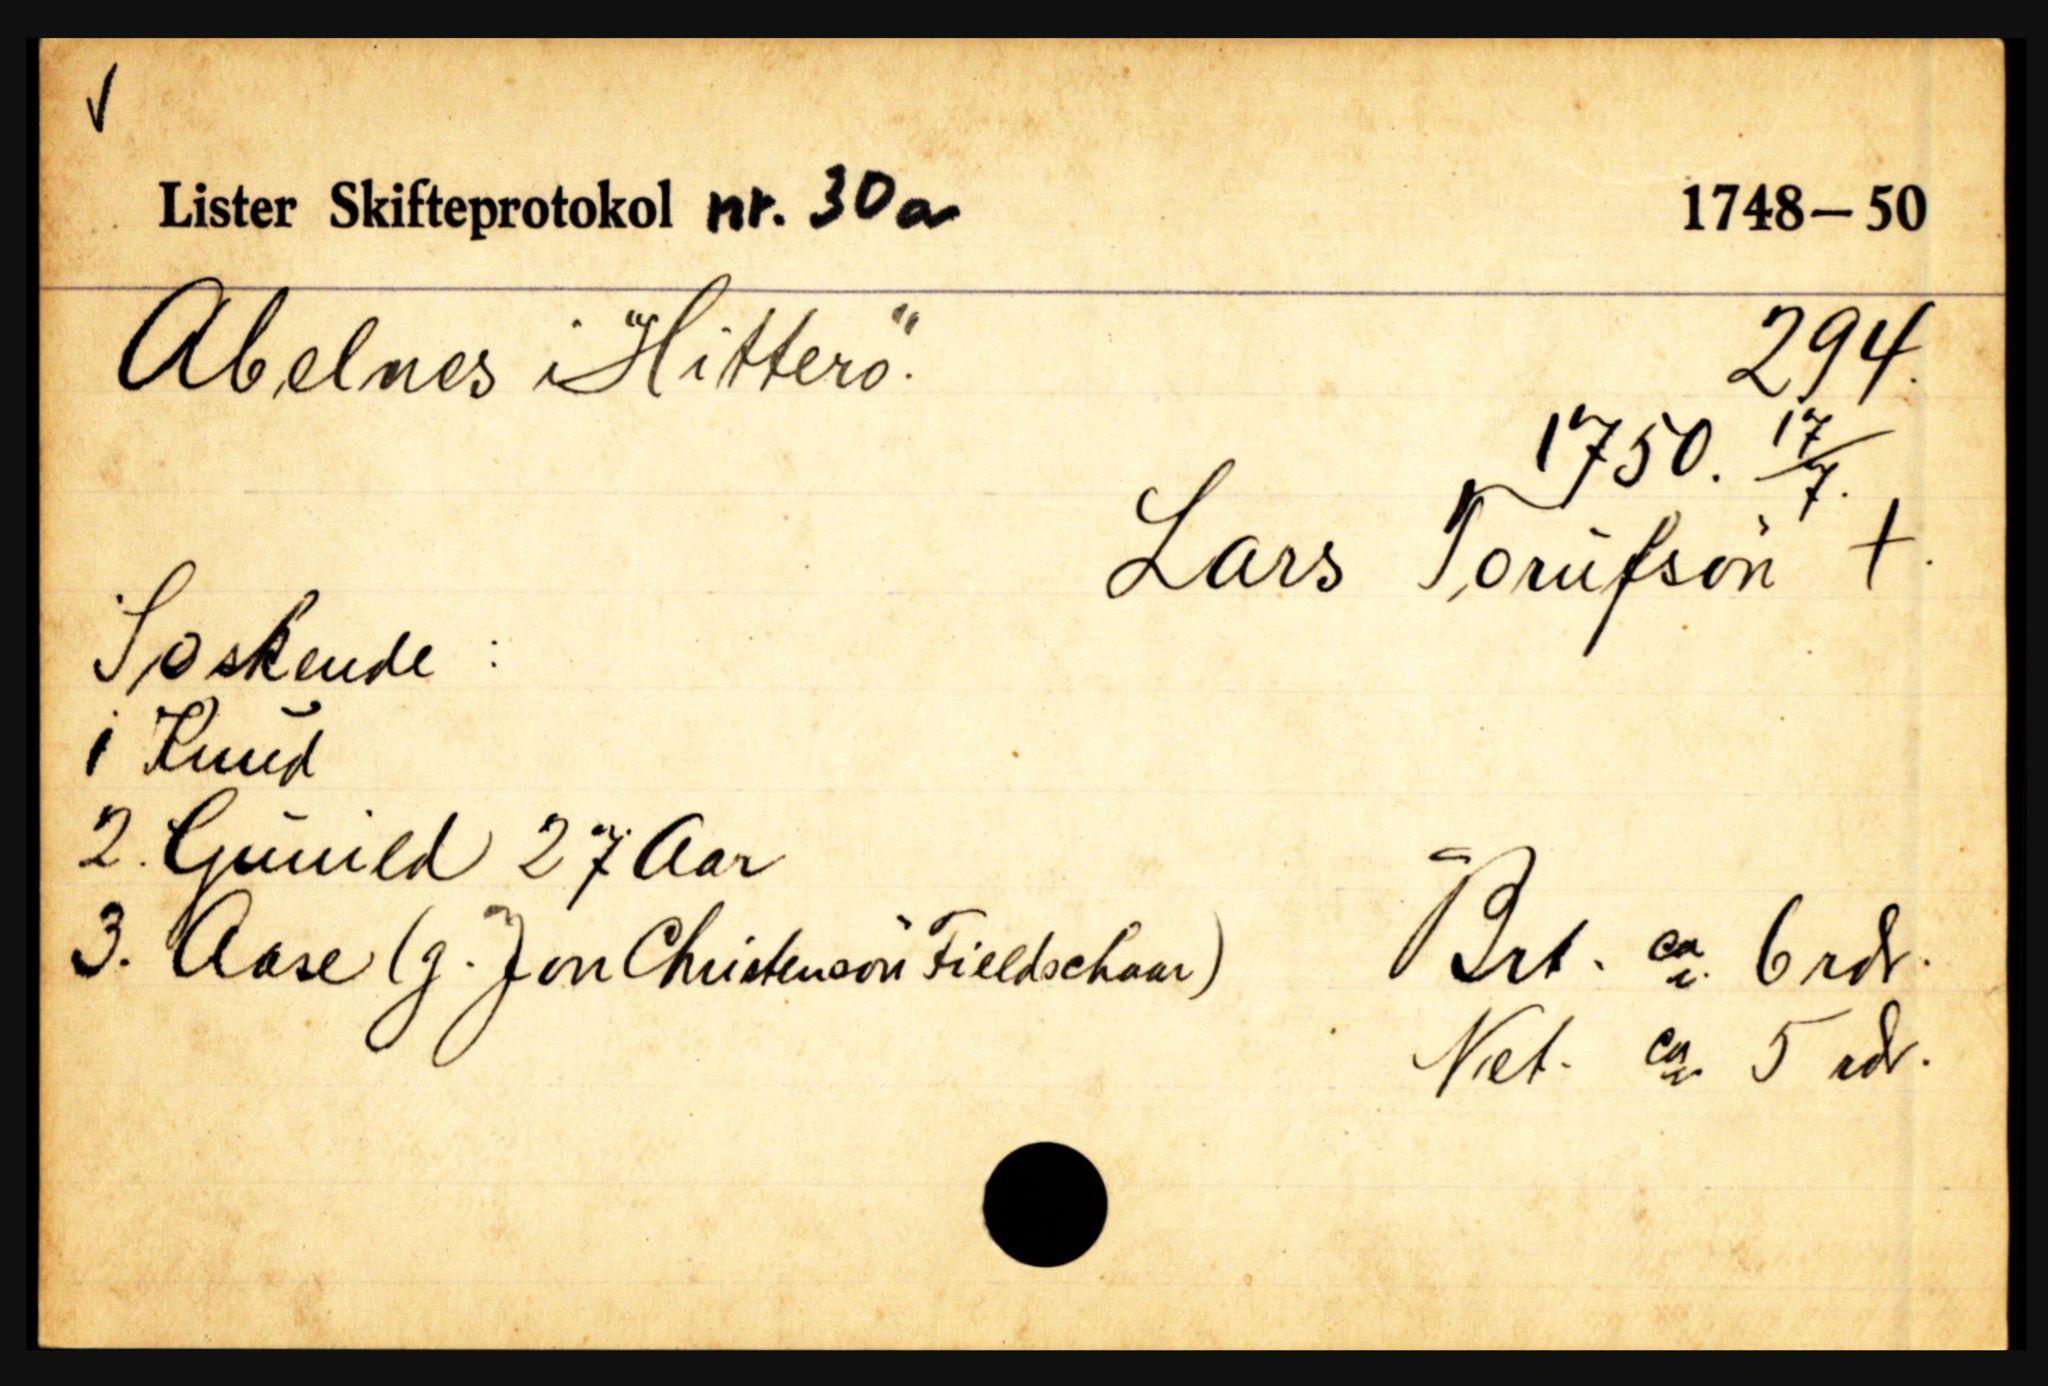 ✓
Lister Skifteprotokol nr. 30a 1748–50
Abelnes i "Hitterö".
294.
1750. 17/7.
Lars Torüfsön †.
Søskende :
1 Knŭd
2. Günild 27 Aar
3. Aase (g. Jon Christensön Fieldschaar)
Brt. ca. 6 rdr.
Net. ca. 5 rdr.